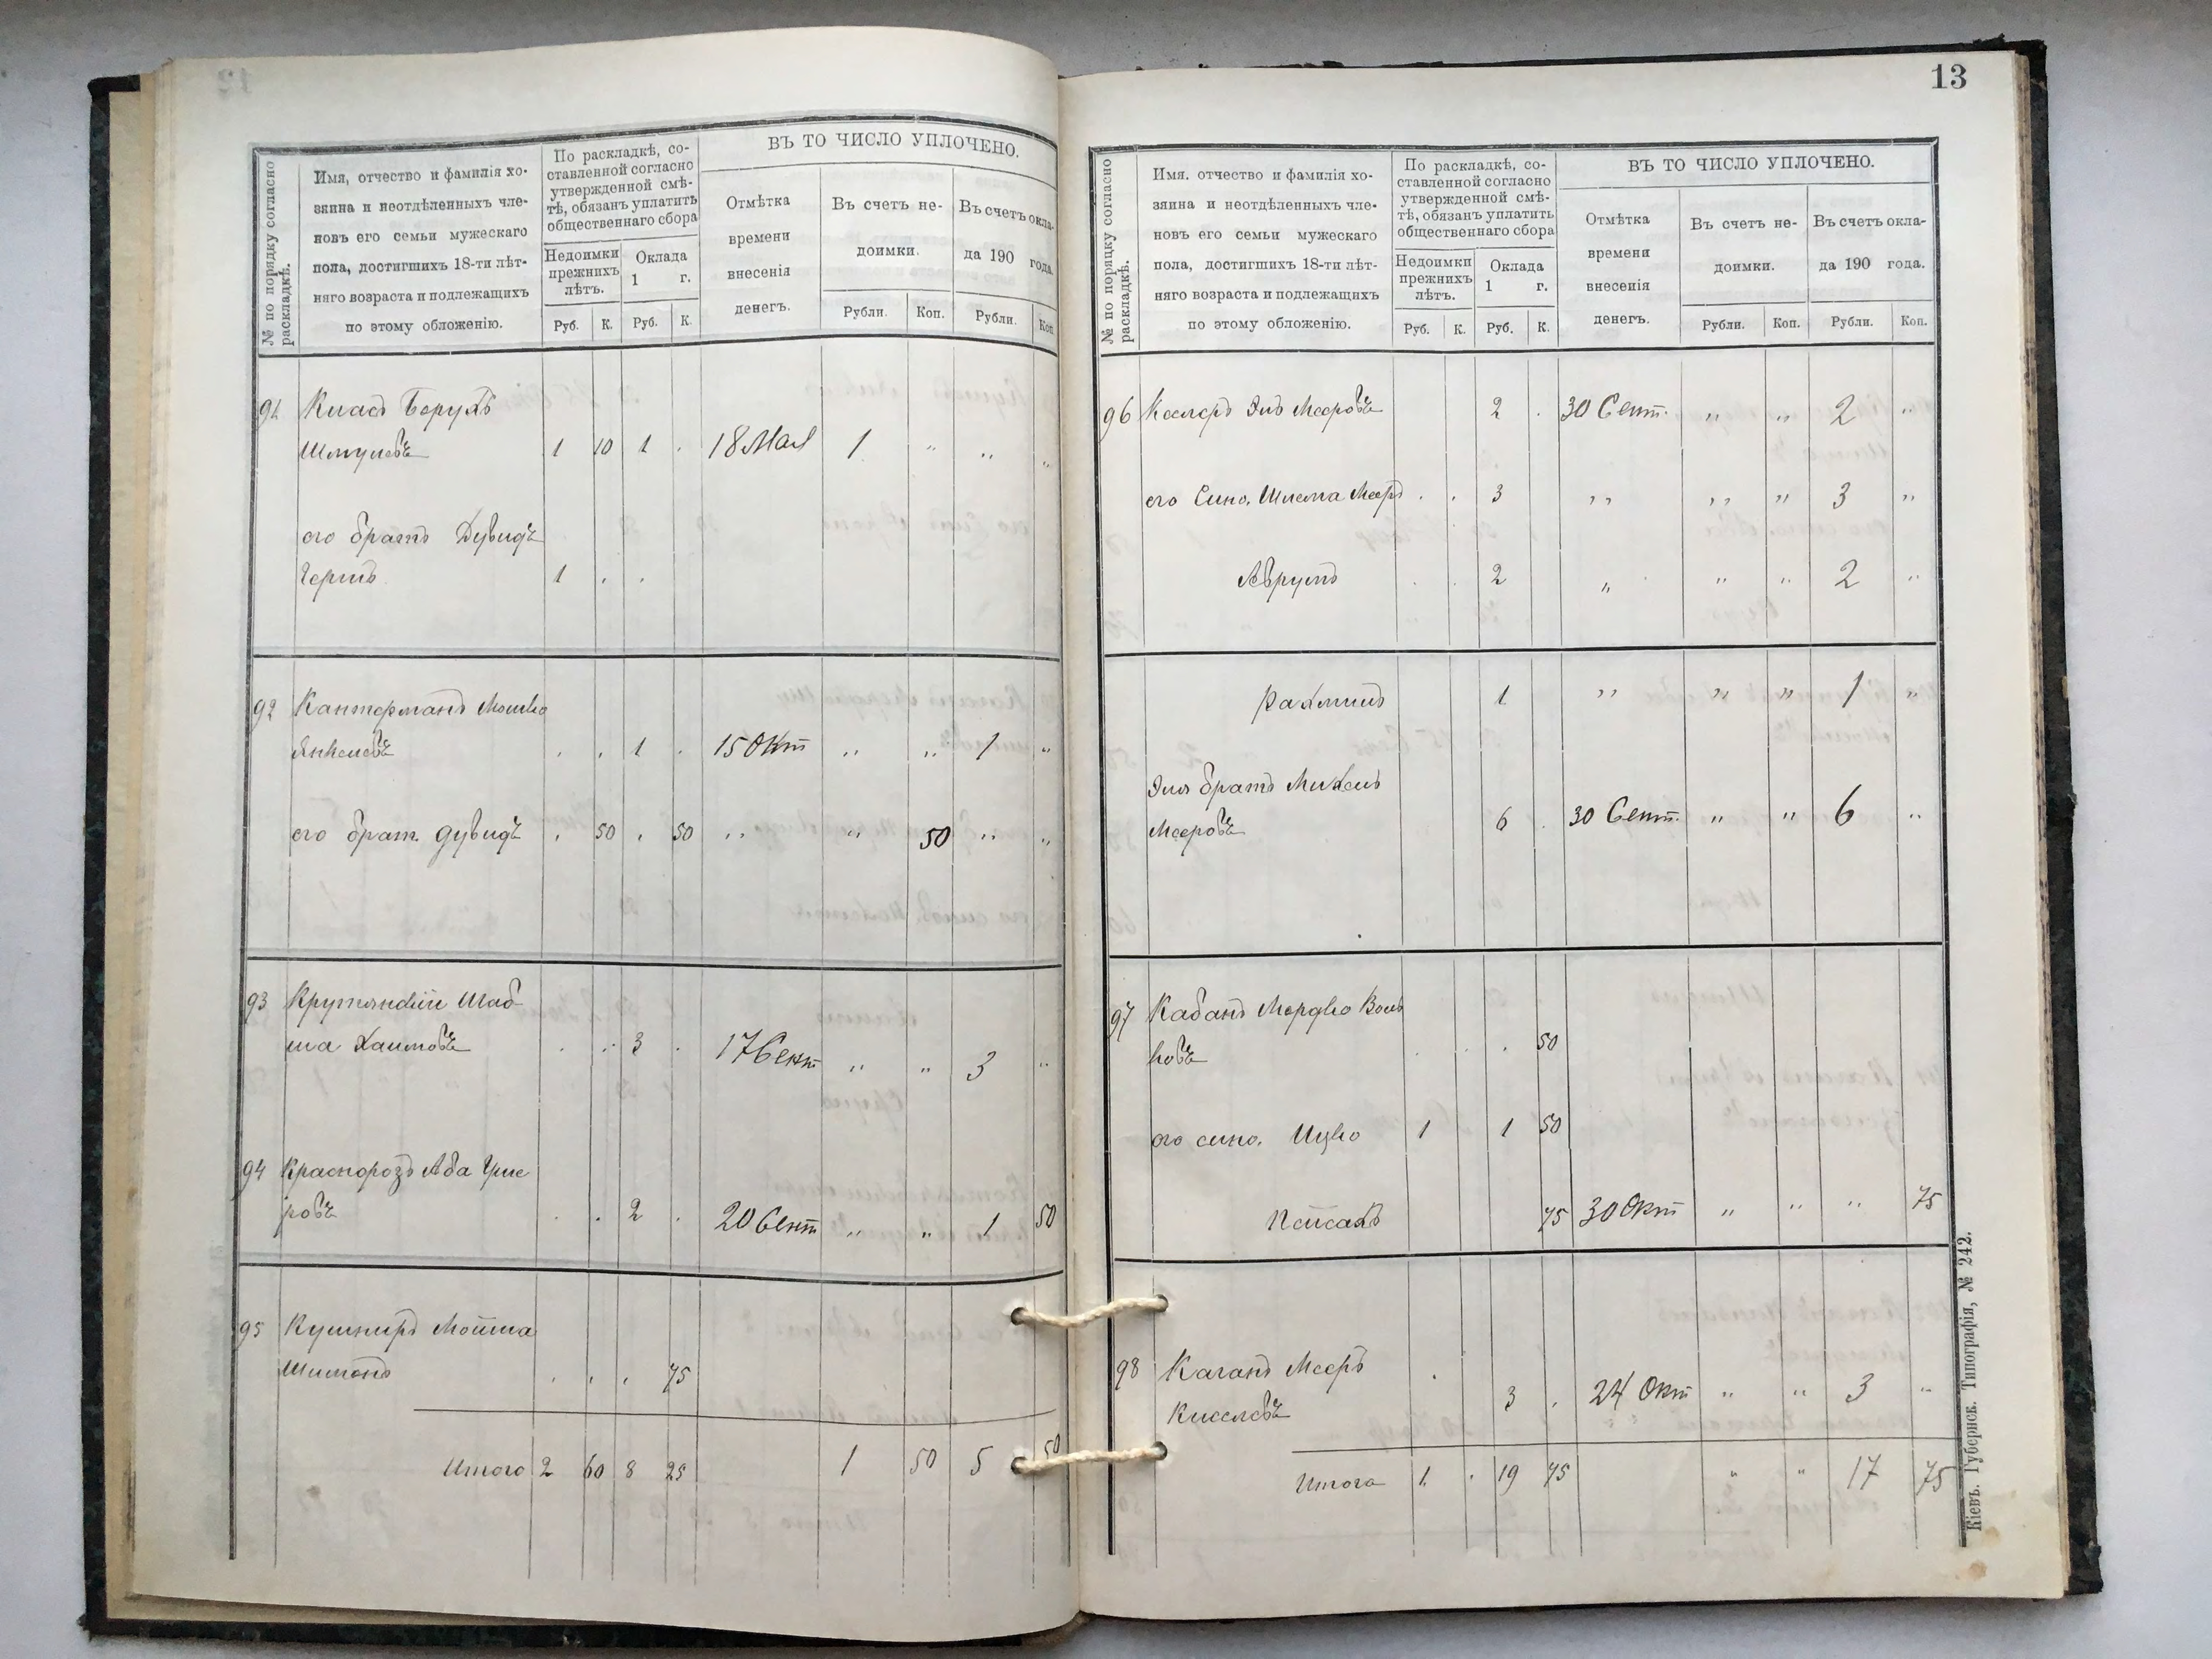 № по порядку согласно
раскладкѣ.
Имя, отчество и фамилія хо-
зяина и неотдѣленныхъ чле-
новъ его семьи мужескаго
пола, достигшихъ 18-ти лѣт-
няго возраста и подлежащихъ
по этому обложенію.
По раскладкѣ, со-
ставленной согласно
утвержденной смѣ-
тѣ, обязанъ уплатить
общественнаго сбора
Недоимки
прежнихъ
лѣтъ.
Оклада
1 г.
Руб. К. Руб. К.
ВЪ ТО ЧИСЛО УПЛОЧЕНО.
Отмѣтка
времени
внесенія
денегъ.
Въ счетъ не-
доимки.
Въ счетъ окла-
да 190 года.
Рубли. Коп. Рубли. Коп.
91 Киасъ Борухъ
Шмулевъ 1 10 1 . 18 Мая 1 " " "
его братъ Дувидъ
Гершъ 1 . .
92 Кантерманъ Мошко
Янкелевъ . . 1 . 15 Окт " " 1 "
его брат. Дувидъ . 50 . 50 " " 50 " "
93 Крутянскій Шаб
ша Хаимовъ . . 3 . 17 Сент " " 3 "
94 Краснорозъ Аба
ровъ . . 2 . 20 Сент " " 1 50
95 Кушниръ Мотша
Шимонъ . . . 75
Итого 2 60 8 25 1 50 5 50
13
№ по порядку согласно
раскладкѣ.
Имя. отчество и фамилія хо-
зяина и неотдѣленныхъ чле-
новъ его семьи мужескаго
пола, достигшихъ 18-ти лѣт-
няго возраста и подлежащихъ
по этому обложенію.
По раскладкѣ, со-
ставленной согласно
утвержденной смѣ-
тѣ, обязанъ уплатить
общественнаго сбора
Недоимки
прежнихъ
лѣтъ.
Оклада
1 г.
Руб. К. Руб. К.
ВЪ ТО ЧИСЛО УПЛОЧЕНО.
Отмѣтка
времени
внесенія
денегъ.
Въ счетъ не-
доимки.
Въ счетъ окла-
да 190 года.
Рубли. Коп. Рубли. Коп.
96 Келеръ Эль Мееровъ 2 . 30 Сент. " " 2 "
его Сино. Шлема Меер . . 3 " " " 3 "
Аврумъ . . 2 " " " 2 "
Рахмиль 1 " " " 1 "
Эля братъ Михель
Мееровъ 6 . 30 Сент. " " 6 "
97 Кабанъ Мордко Воль
ковъ . . . 50
его сино. Ицко 1 1 50
Пейсахъ 75 30 Окт " " " 75
98 Каганъ Мееръ
Киселевъ . 3 . 24 Окт " " 3 "
Итого 1. . 19 75 " " 17 75
Кіевъ. Губернск. Типографія, № 242.